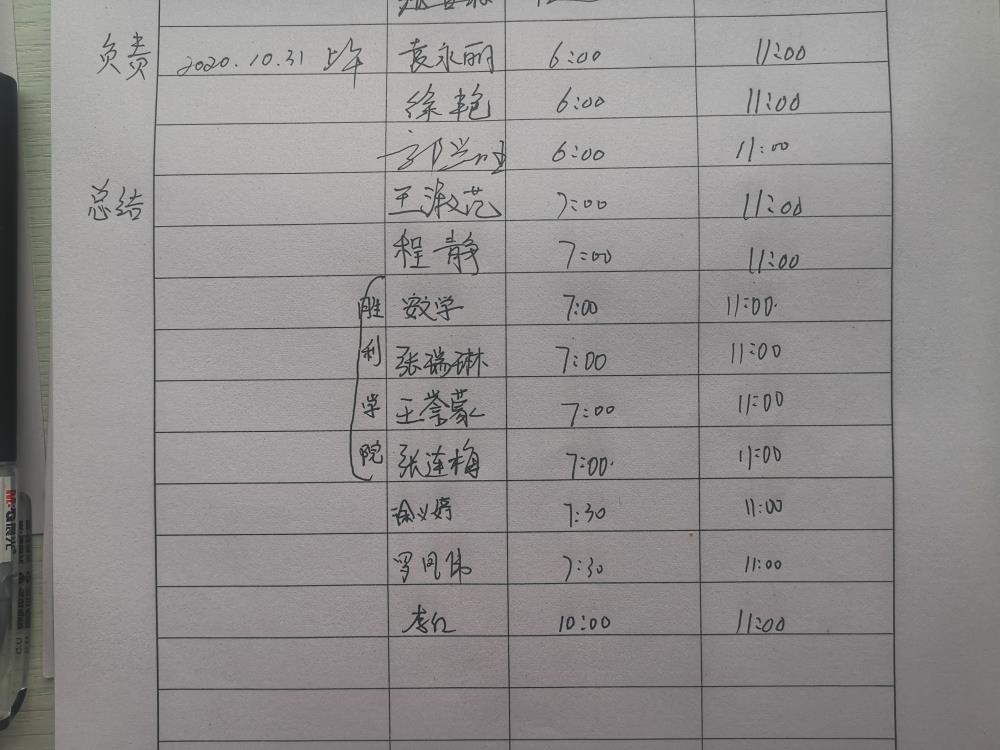 负责 2020.10.31 上午 袁永丽 6:00 11:00
徐艳 6:00 11:00
6:00 11:00
总结 王淑范 7:00 11:00
程静 7:00 11:00
胜利学院
安文学 7:00 11:00
张瑞琳 7:00 11:00
王誉蒙 7:00 11:00
张连梅 7:00 11:00
徐义婷 7:30 11:00
罗凤伟 7:30 11:00
李红 10:00 11:00